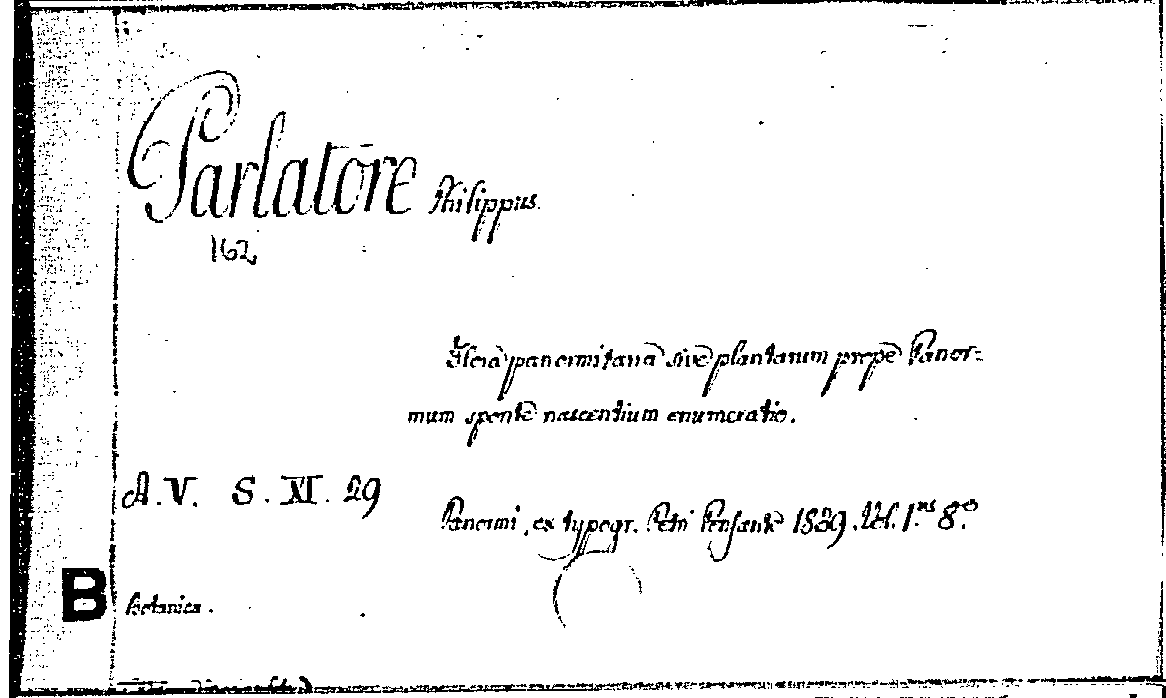 Parlatore Philippus.
162
Flora panormitana sive plantarum prope Panor=
mum sponte nascentium enumeratio.
A.V. S. XI. 29
Panormi, ex typogr. Petri Pensante 1839. Vol. 1.us 8.o
B
Botanica.